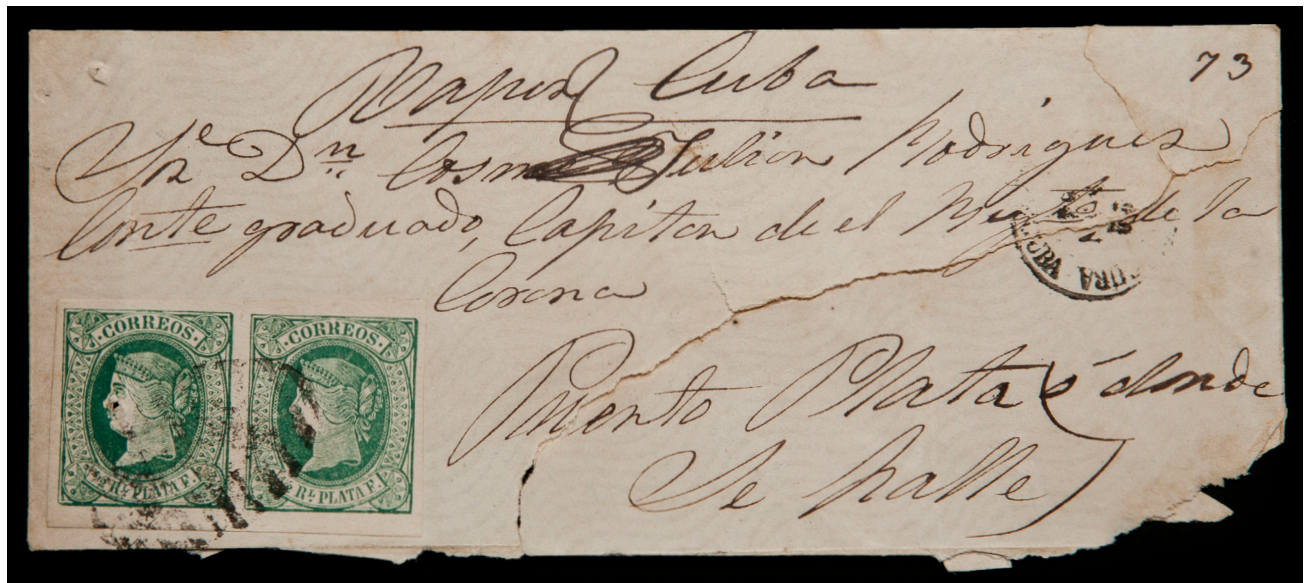 73
Vapor Cuba
Sr Dn Cosme Julian Rodriguez
Conte graduado, Capitan de el Regto de la
Corona
Puerto Plata ó donde
Se halle
CORREOS
Rl. PLATA F.
CORREOS
Rl. PLATA F.
CUBA